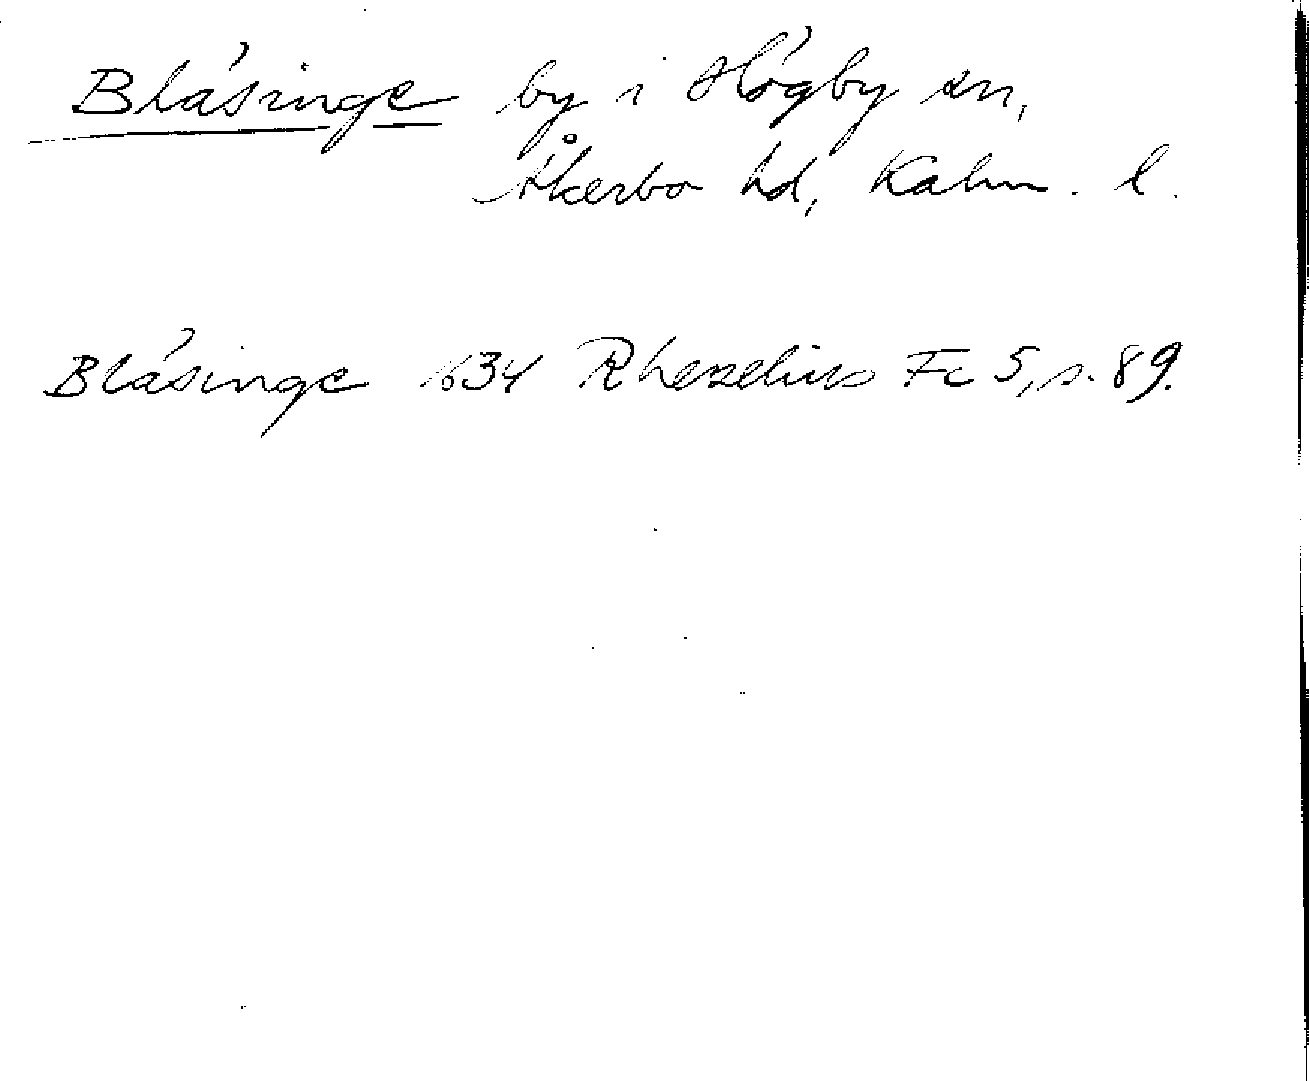 Blásinge by i Högby sn,
Åkerbo hd, Kalm. l.
Blásinge 1634 Rhezelius Fc 5, s. 89.